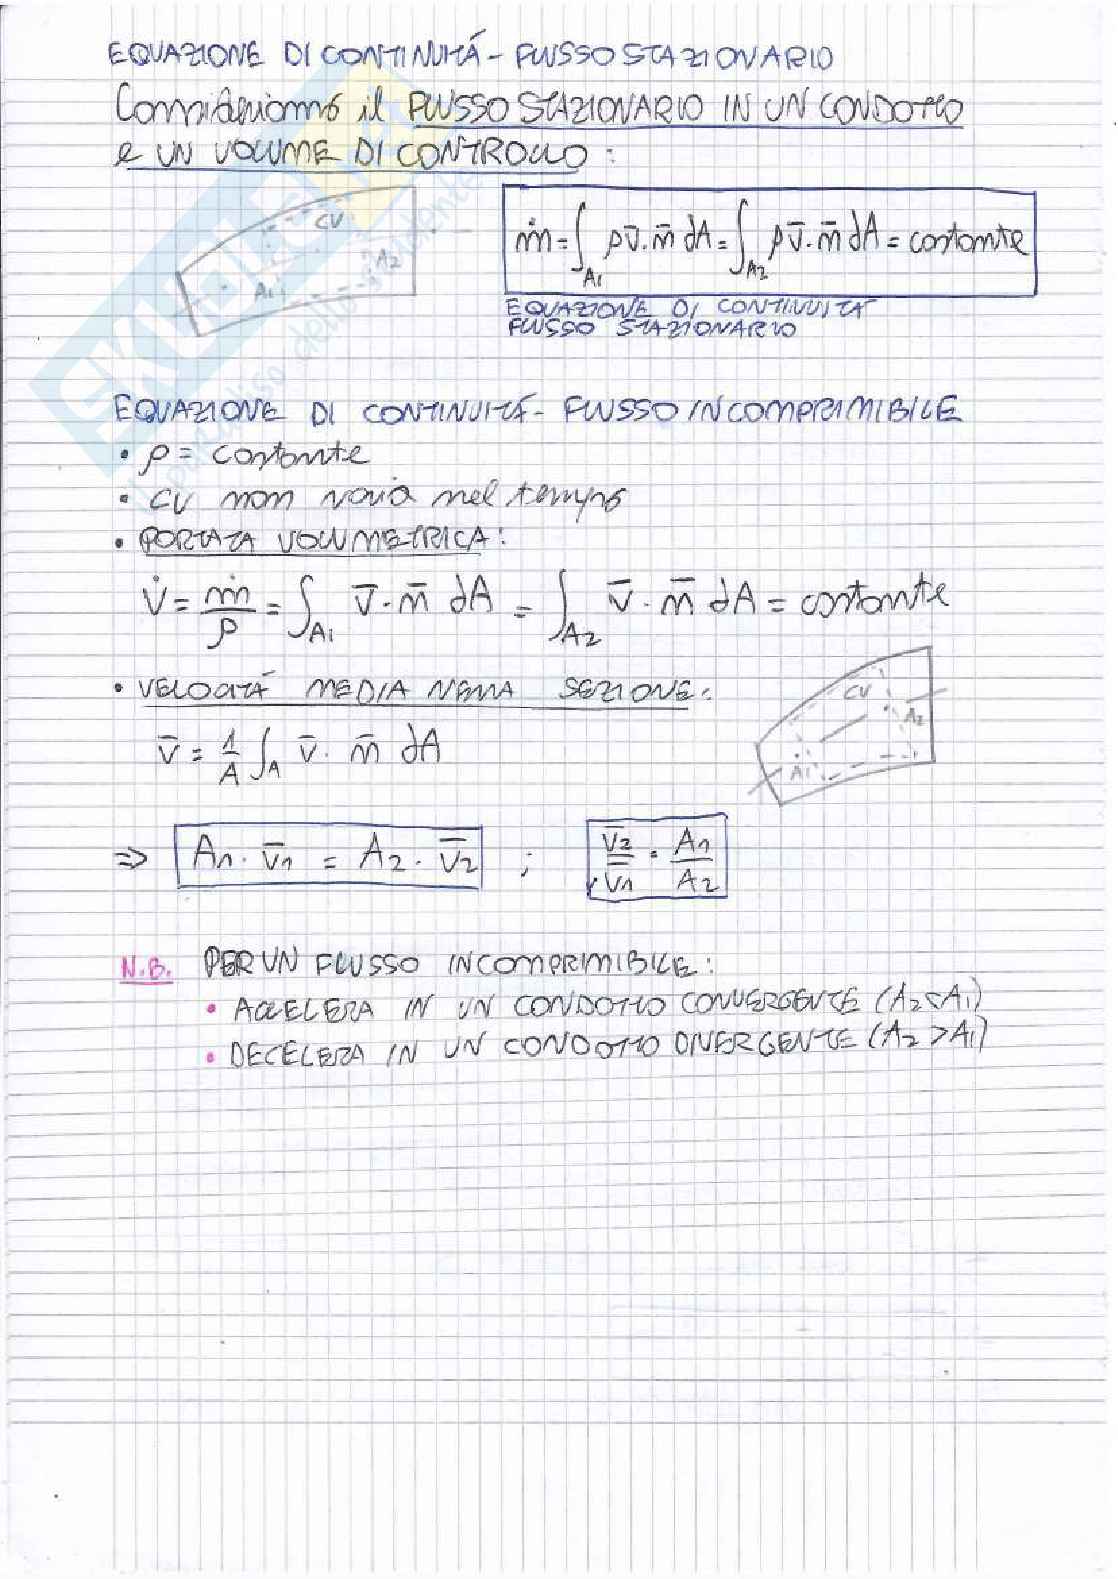 EQUAZIONE DI CONTINUITÁ - FLUSSO STAZIONARIO
Consideriamo il FLUSSO STAZIONARIO IN UN CONDOTTO
e UN VOLUME DI CONTROLLO :
CV
A1
A2
ṁ = ∫A1 ρ v̄ · n̄ dA = ∫A2 ρ v̄ · n̄ dA = costante
EQUAZIONE DI CONTINUITÁ
FLUSSO STAZIONARIO
EQUAZIONE DI CONTINUITÁ - FLUSSO INCOMPRIMIBILE
• ρ = costante
• CV non varia nel tempo
• PORTATA VOLUMETRICA :
V̇ = ṁ/ρ = ∫A1 v̄ · n̄ dA = ∫A2 v̄ · n̄ dA = costante
• VELOCITÁ MEDIA NELLA SEZIONE :
CV
A1
A2
v̄ = 1/A ∫A v̄ · n̄ dA
⇒ A1 · v̄1 = A2 · v̿2 ; v̿2/v̿1 = A1/A2
N.B. PER UN FLUSSO INCOMPRIMIBILE :
• ACCELERA IN UN CONDOTTO CONVERGENTE (A2 < A1)
• DECELERA IN UN CONDOTTO DIVERGENTE (A2 > A1)